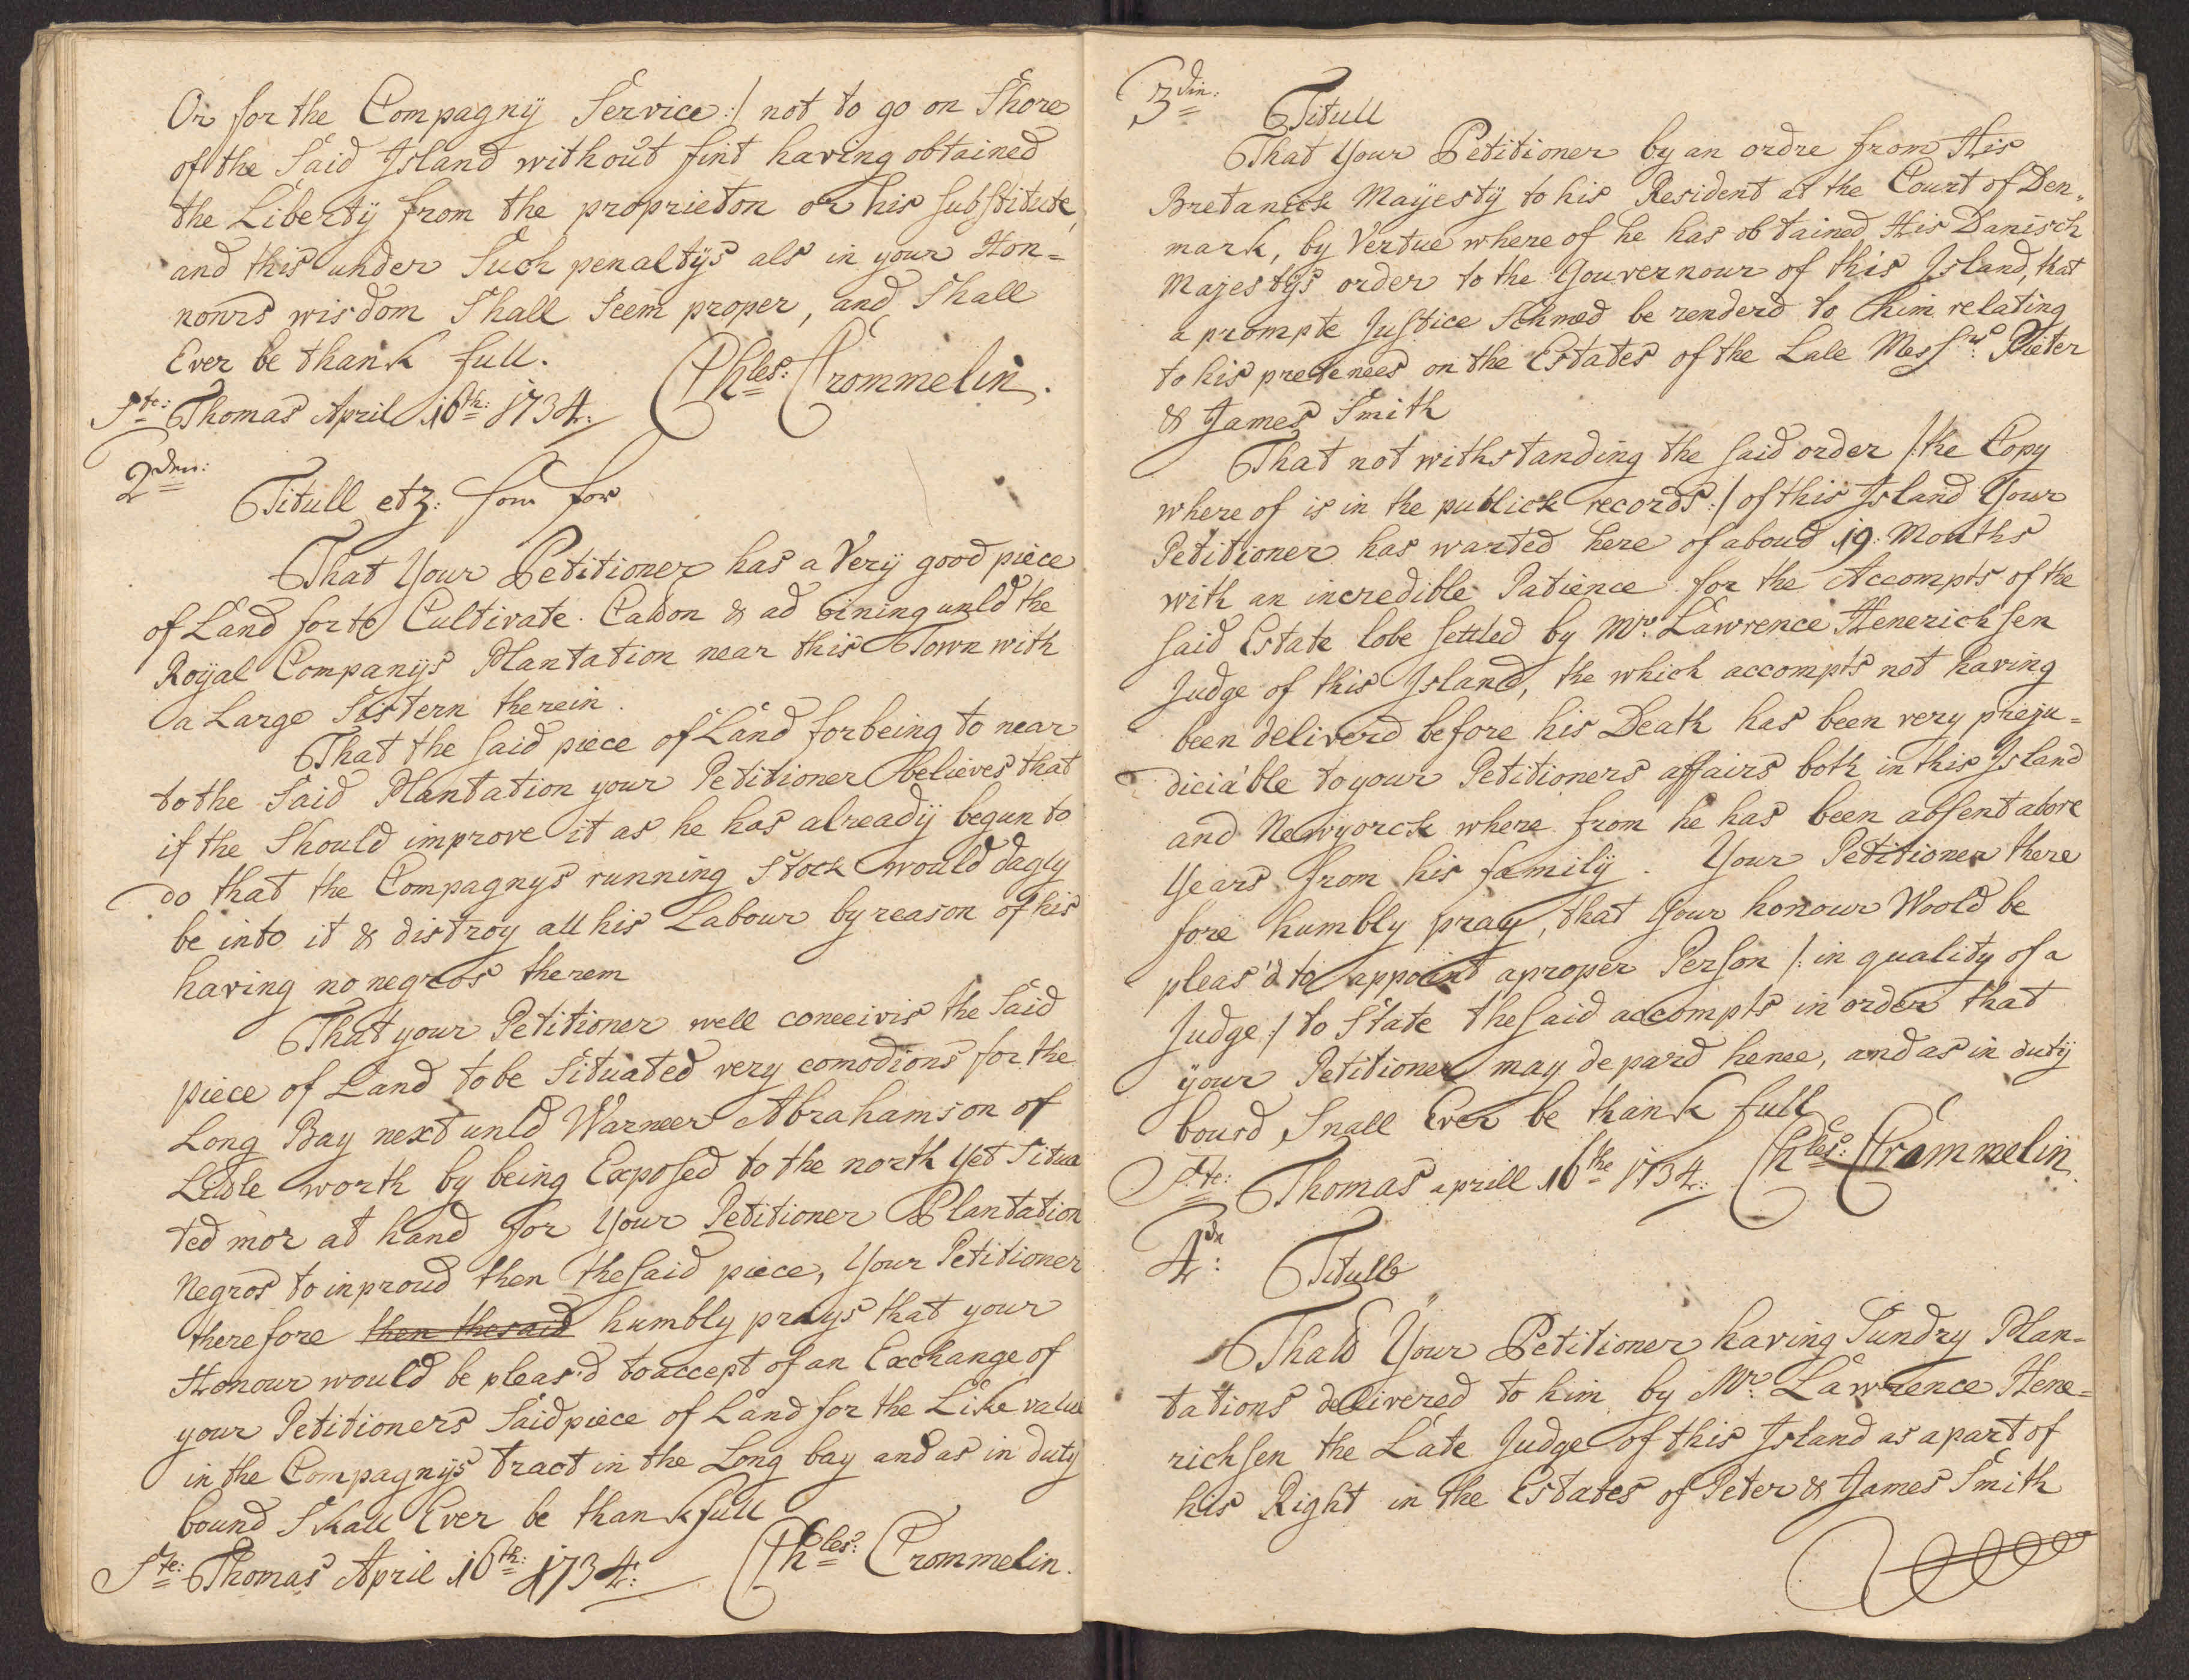 Or for the Compagnÿ Service :/ not to go on Shore
of the Said Jsland without first having obtained
the Libertÿ from the proprietor or his Substitute,
and this under Such penaltÿs als in your Hon=
nours wisdom Shall Seem proper, and Shall
Ever be thank full.
Ste: Thomas April 16th: 1734: Chles: Crommelin.
2den:
Titull etz:
That Your Petitioner has a Verÿ good piece
of Land for to Cultivate. Catton & ad oining unld the
Roÿal Companÿs Plantation near this Town with
a Large Sistern therein.
That the Said piece of Land for being to near
to the Said Plantation your Petitioner believes that
if the Should improve it as he has alreadÿ begun to
do that the Compagnys running Stock would dagly
be into it & distroy all his Labour by reason of his
having no negros therem
That your Petitioner well conceivis the Said
piece of Land to be Situated very comodions for the
Long Bay next unld Warneer Abrahamson of
Lidle worth by being Exposed to the north yet Situa
ted mor at hand for Your Petitioner Plantation
Negros to inproud then the Said piece, Your Petitioner
therefore then thesaid humbly prays that your
Honour would be pleas'd to accept of an Exchange of
your Petitioners Said piece of Land for the Like value
in the Compagnÿs tract in the Long bay and as in duty
bound Shall Ever be thankfull
Ste: Thomas April 16th: 1734: Chles: Crommelin.
3din:
Titull
That Your Petitioner by an ordre from His
Bretanick Mayestÿ to his Resident at the Court of Den=
mark, by Vertue where of he has obtained His Danisch
Majestÿs order to the Gouvernour of this Jsland, that
a prompte Justice be renderd to him relating
to his pretences on the Estates of the Late Messrs: Pieter
& James Smith
That not withstanding the Said order /: the Copy
where of is in the publick records :/ of this Jsland Your
Petitioner has warted here of aboud 19. Months
with an incredible Patience for the Accompts of the
Said Estate tobe Settled by Mr: Lawrence Henerichsen
Judge of this Jsland, the which accompts not having
been deliverd before his Death has been very preju=
diciable to your Petitioners affairs both in this Jsland
and Newyorck where from he has been absent above
Years from his familÿ. Your Petitioner there
fore humbly pray, that Your honour Woold be
pleas'd to appoint a proper Person /: in quality of a
Judge :/ to State the Said accompts in order that
ÿour Petitioner may depard hence, and as in dutÿ
bourd Snall Ever be thank full
Ste: Thomas aprill 16the 1734: Chles: Crommelin.
4dn:
Titull
Thatd Your Petitioner having Sundry Plan=
tations delivered to him by Mr: Lawrence Hene=
richsen the Late Judge of this Jsland as a part of
his Right in the Estates of Peter & James Smith